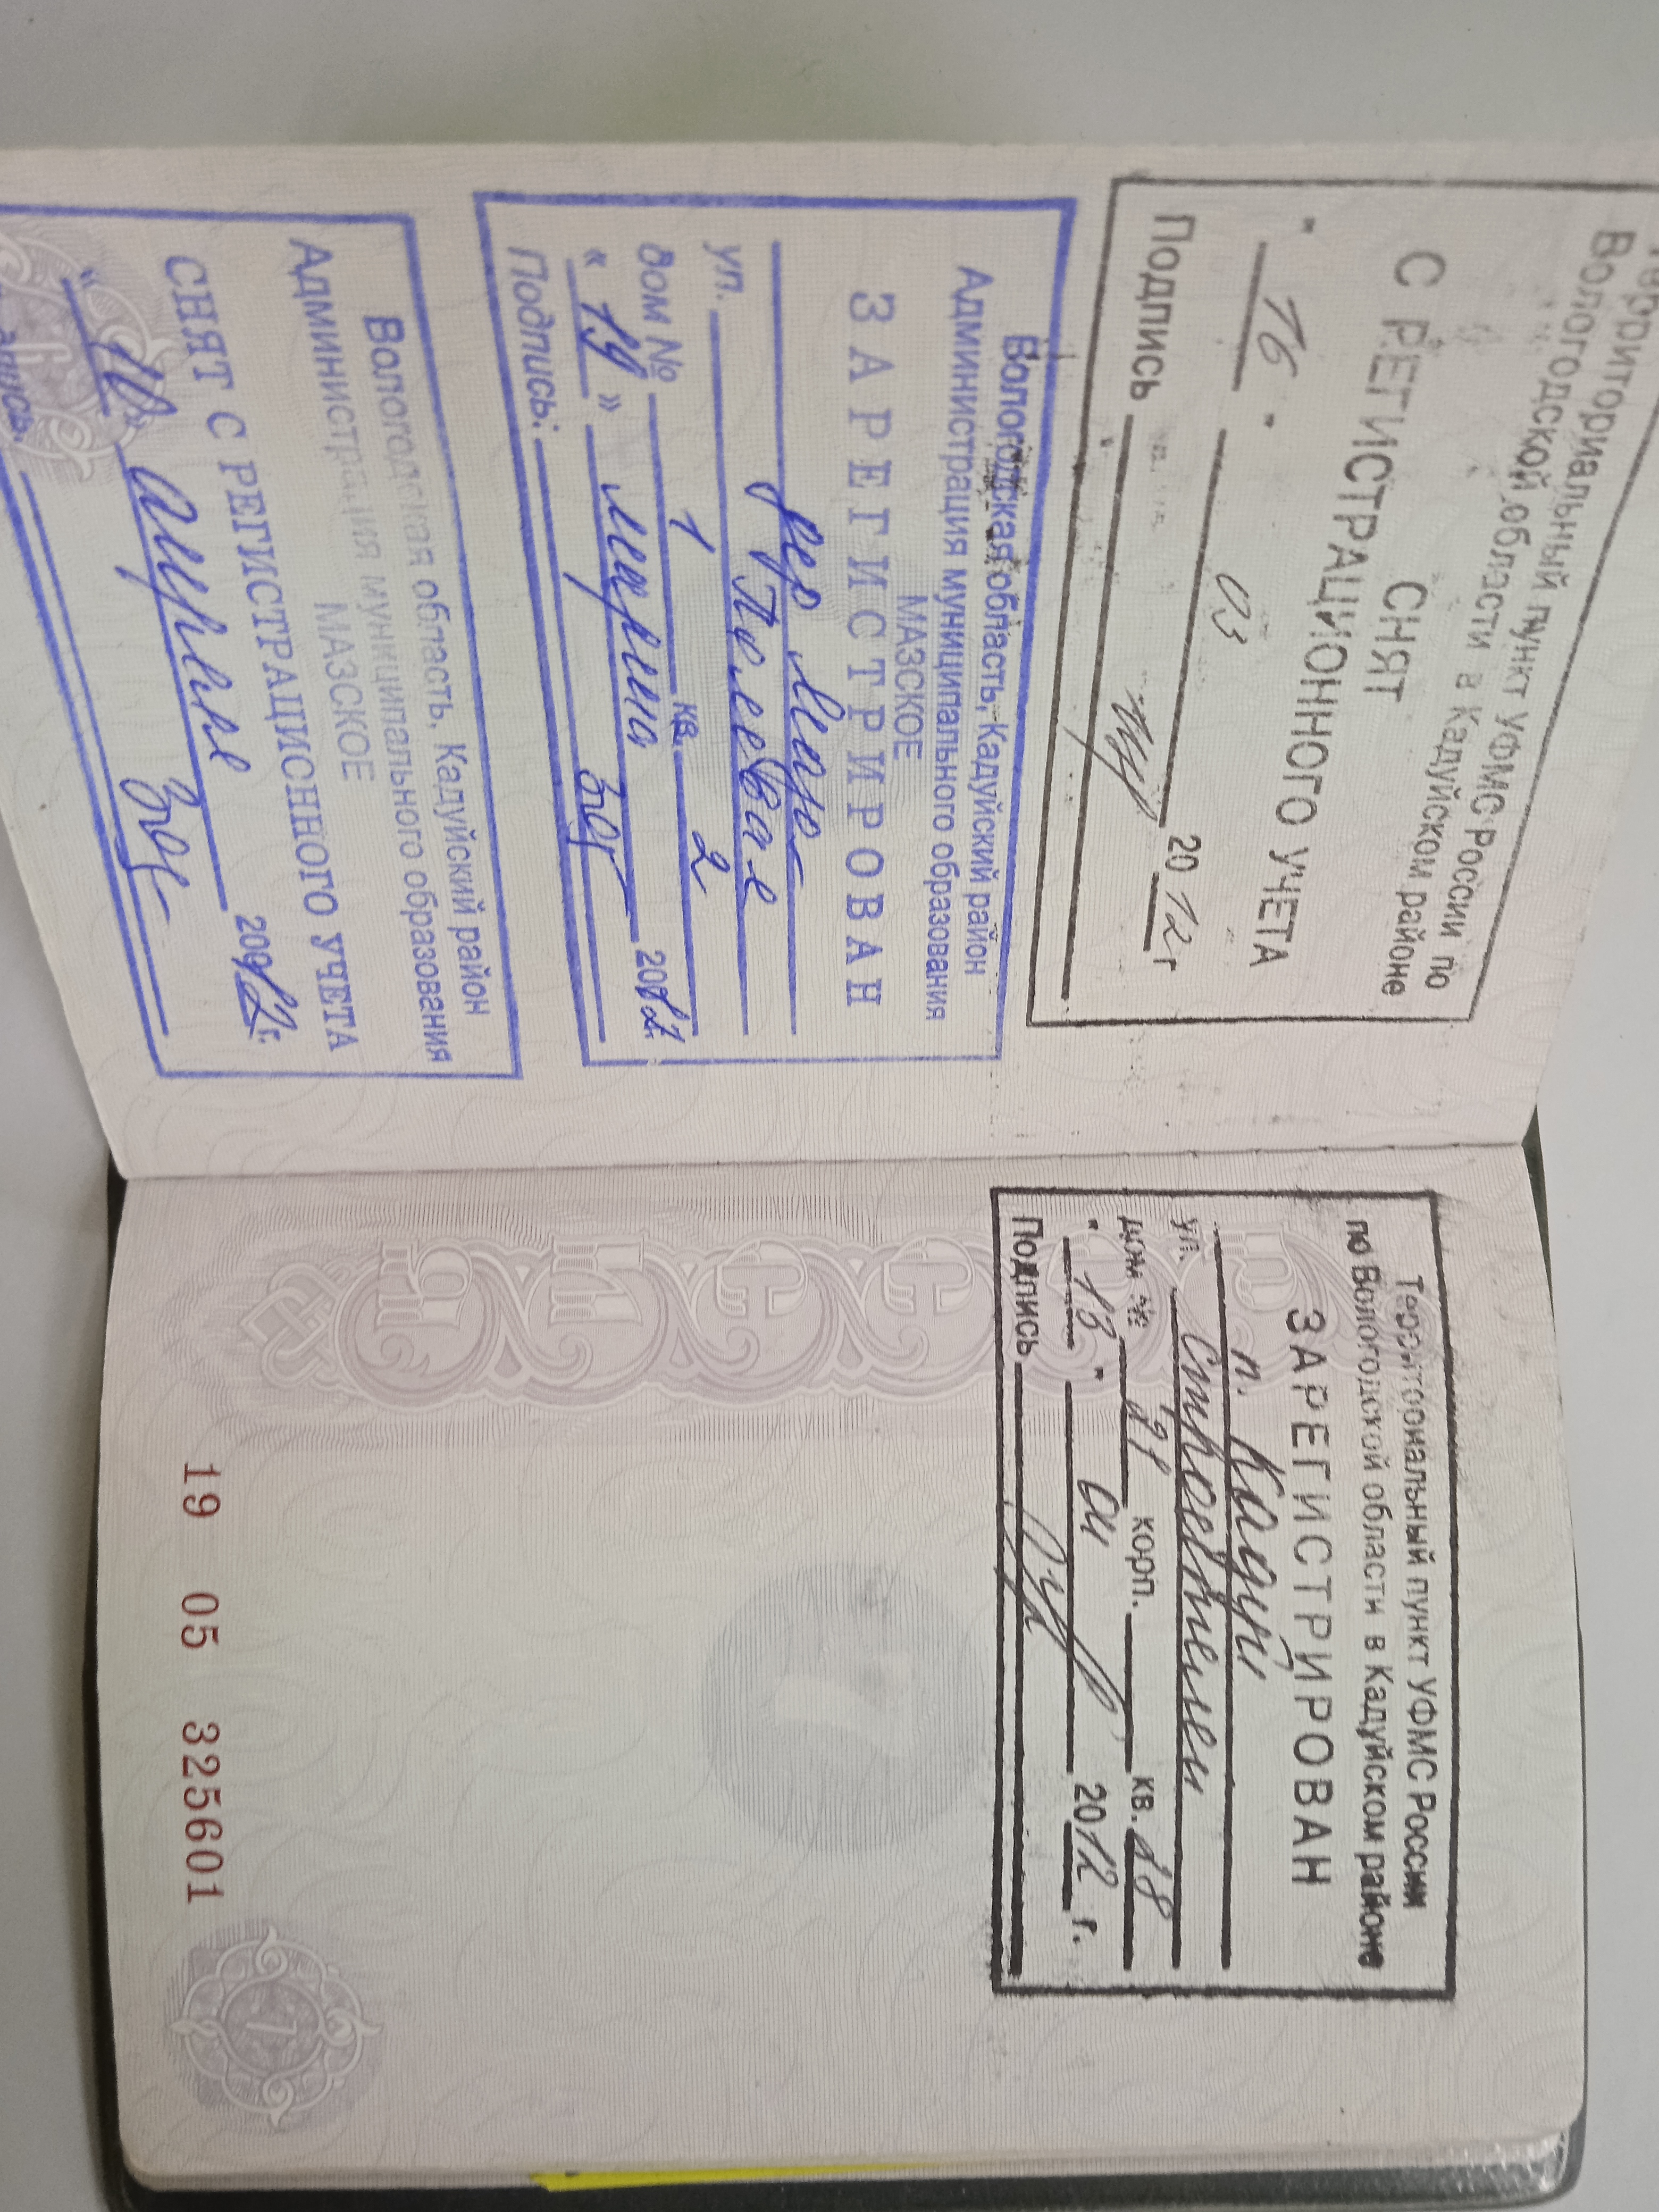 Территориальный пункт УФМС России по
Вологодской области в Кадуйском районе
СНЯТ
С РЕГИСТРАЦИОННОГО УЧЕТА
" 16 " 03 2012 г
Подпись
Вологодская область, Кадуйский район
Администрация муниципального образования
МАЗСКОЕ
ЗАРЕГИСТРИРОВАН
дер Маза
ул. Полевая
дом № 1 кв. 2
« 19 » марта 2012г.
Подпись:
Вологодская область, Кадуйский район
Администрация муниципального образования
МАЗСКОЕ
СНЯТ С РЕГИСТРАЦИОННОГО УЧЕТА
« 10 » апреля 2012г.
Подпись:
Территориальный пункт УФМС России
по Вологодской области в Кадуйском районе
ЗАРЕГИСТРИРОВАН
п. Кадуй
ул. Строителей
дом № корп. кв. 18
" 13 " 04 2012 г.
Подпись
19 05 325601
7